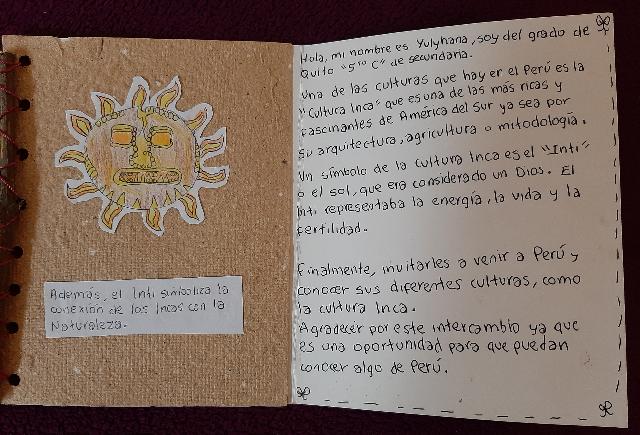 Además, el Inti simboliza la
conexión de los Incas con la
Naturaleza.
Hola, mi nombre es Yulyhana, soy del grado de
Quito "5to C" de secundaria.
Una de las culturas que hay er el Perú es la
"Cultura Inca" que es una de las más ricas y
fascinantes de América del Sur ya sea por
su arquitectura, agricultura o mitodología.
Un símbolo de la cultura Inca es el "Inti"
o el sol, que era considerado un Dios. El
Inti representaba la energía, la vida y la
fertilidad.
Finalmente, invitarles a venir a Perú y
conocer sus diferentes culturas, como
la cultura Inca.
Agradecer por este intercambio ya que
es una oportunidad para que puedan
concer algo de Perú.